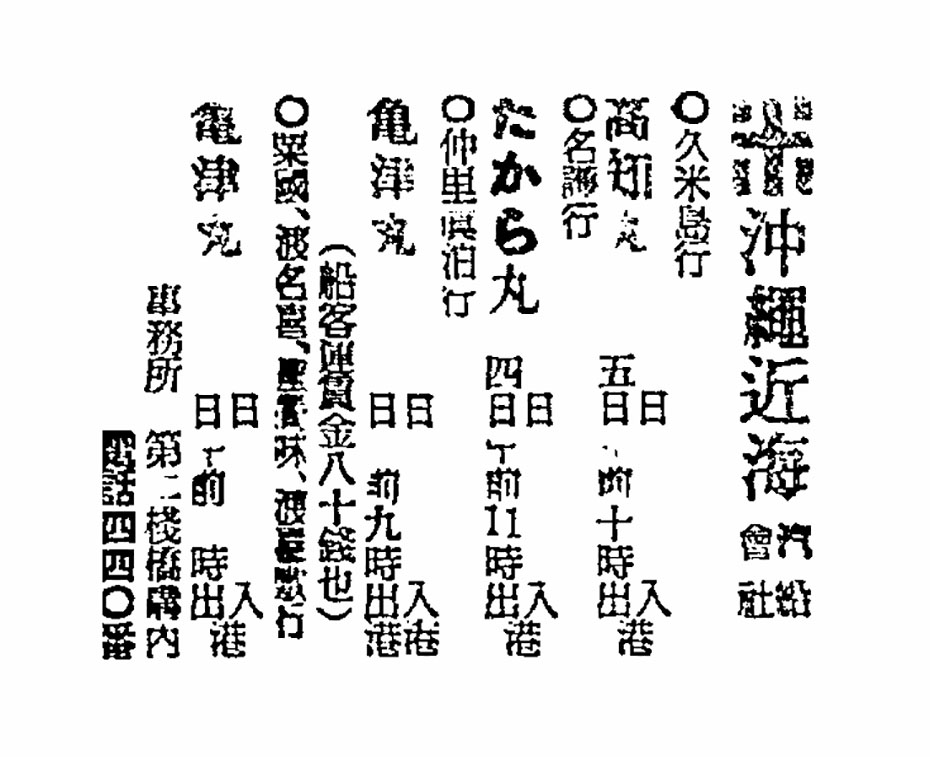 沖繩近海汽船會社
〇久米島行
高知丸 五日午前十時出港
日入港
〇名護行
たから丸 四日午前11時出港
日入港
〇仲里眞泊行
亀津丸 日前九時出港
日入港
(船客運賃金八十錢也)
〇粟國、渡名喜、座間味、渡嘉敷行
亀津丸 日午前 時出港
日入
事務所 第二棧橋構内
電話四四〇番